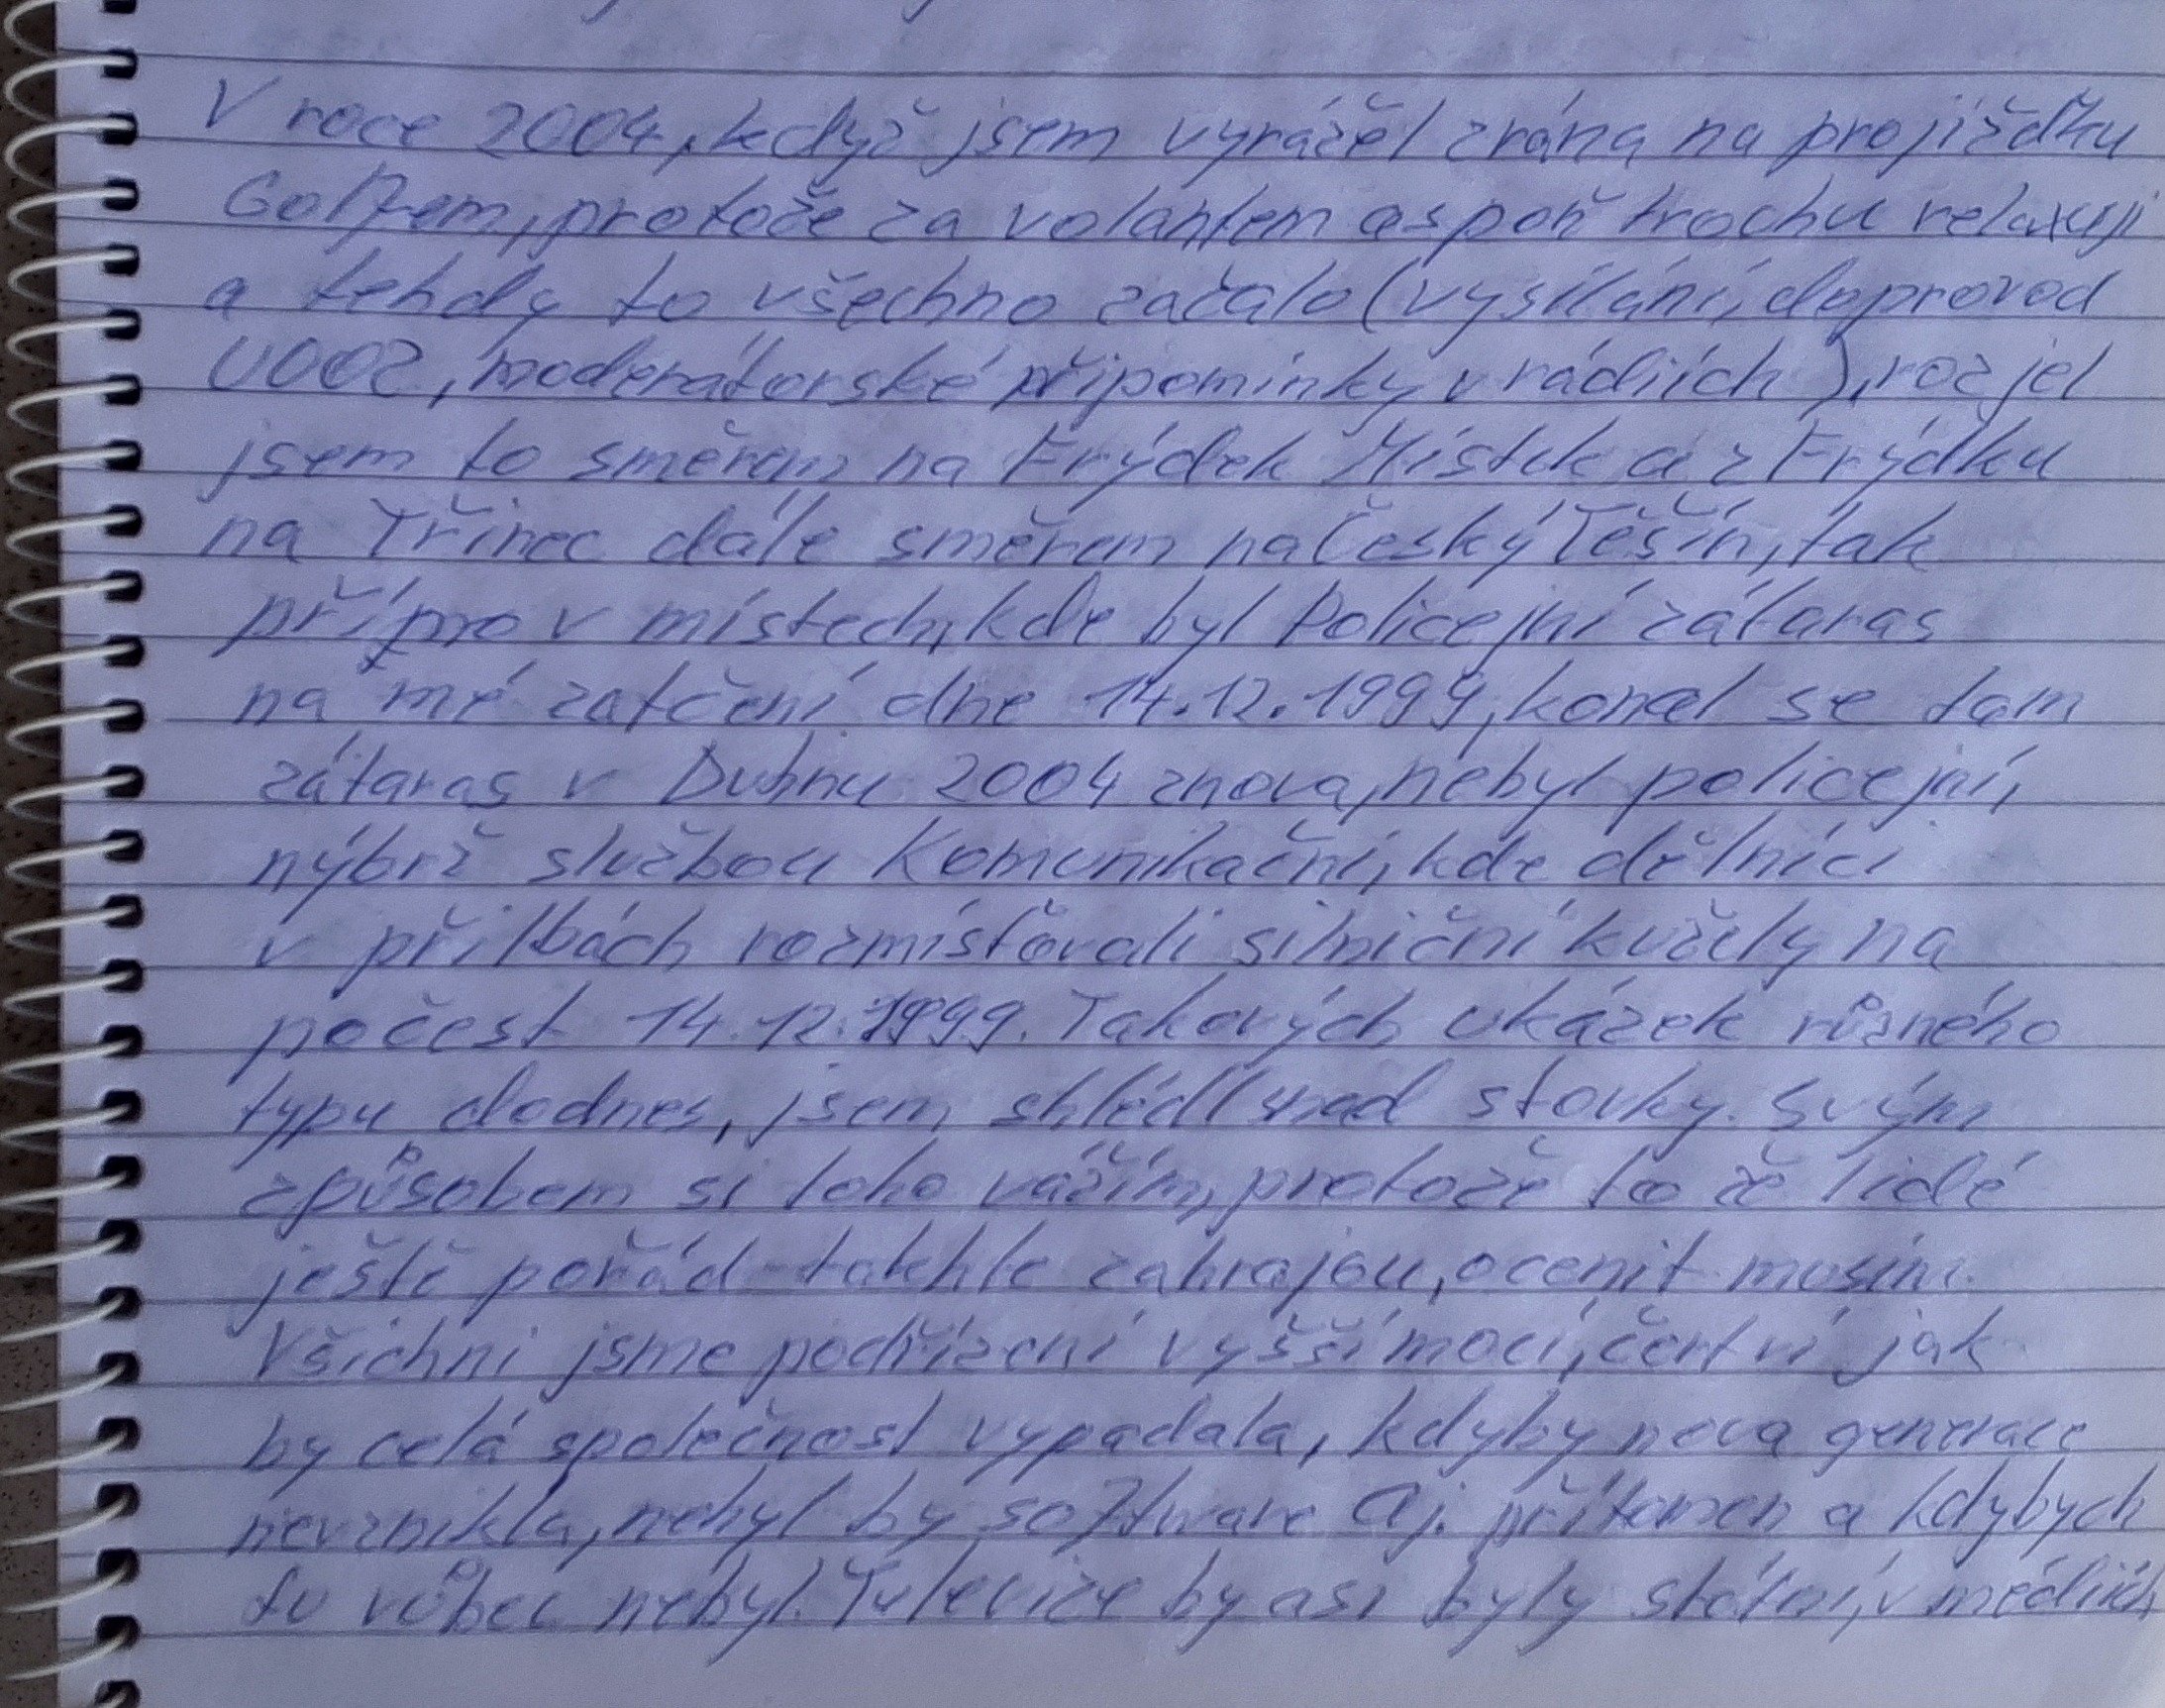 V roce 2004, když jsem vyrážel zrána na projížďku
Golfem, protože za volantem aspoň trochu relaxuji
a tehdy to všechno začalo (vysílání, doprovod
ÚOOZ, moderátorské připomínky v rádiích), rozjel
jsem to směrem na Frýdek Místek a z Frýdku
na Třinec dále směrem na Český Těšín, tak
přímo v místech, kde byl Policejní zátaras
na mé zatčení dne 14.12.1999, konal se tam
zátaras v Dubnu 2004 znova, nebyl policejní,
nýbrž službou Komunikační, kde dělníci
v přilbách rozmísťovali silniční kužely na
počest 14.12.1999. Takových ukázek různého
typu dodnes, jsem shlédl snad stovky. Svým
způsobem si toho vážím, protože to že lidé
ještě pořád takhle zahrajou, ocenit musím.
Všichni jsme podřízení vyšší moci, čert ví jak
by celá společnost vypadala, kdyby nova generace
nevznikla, nebyl by software Aj. přítomen a kdybych
tu vůbec nebyl. Televize by asi byly státní, v médiích